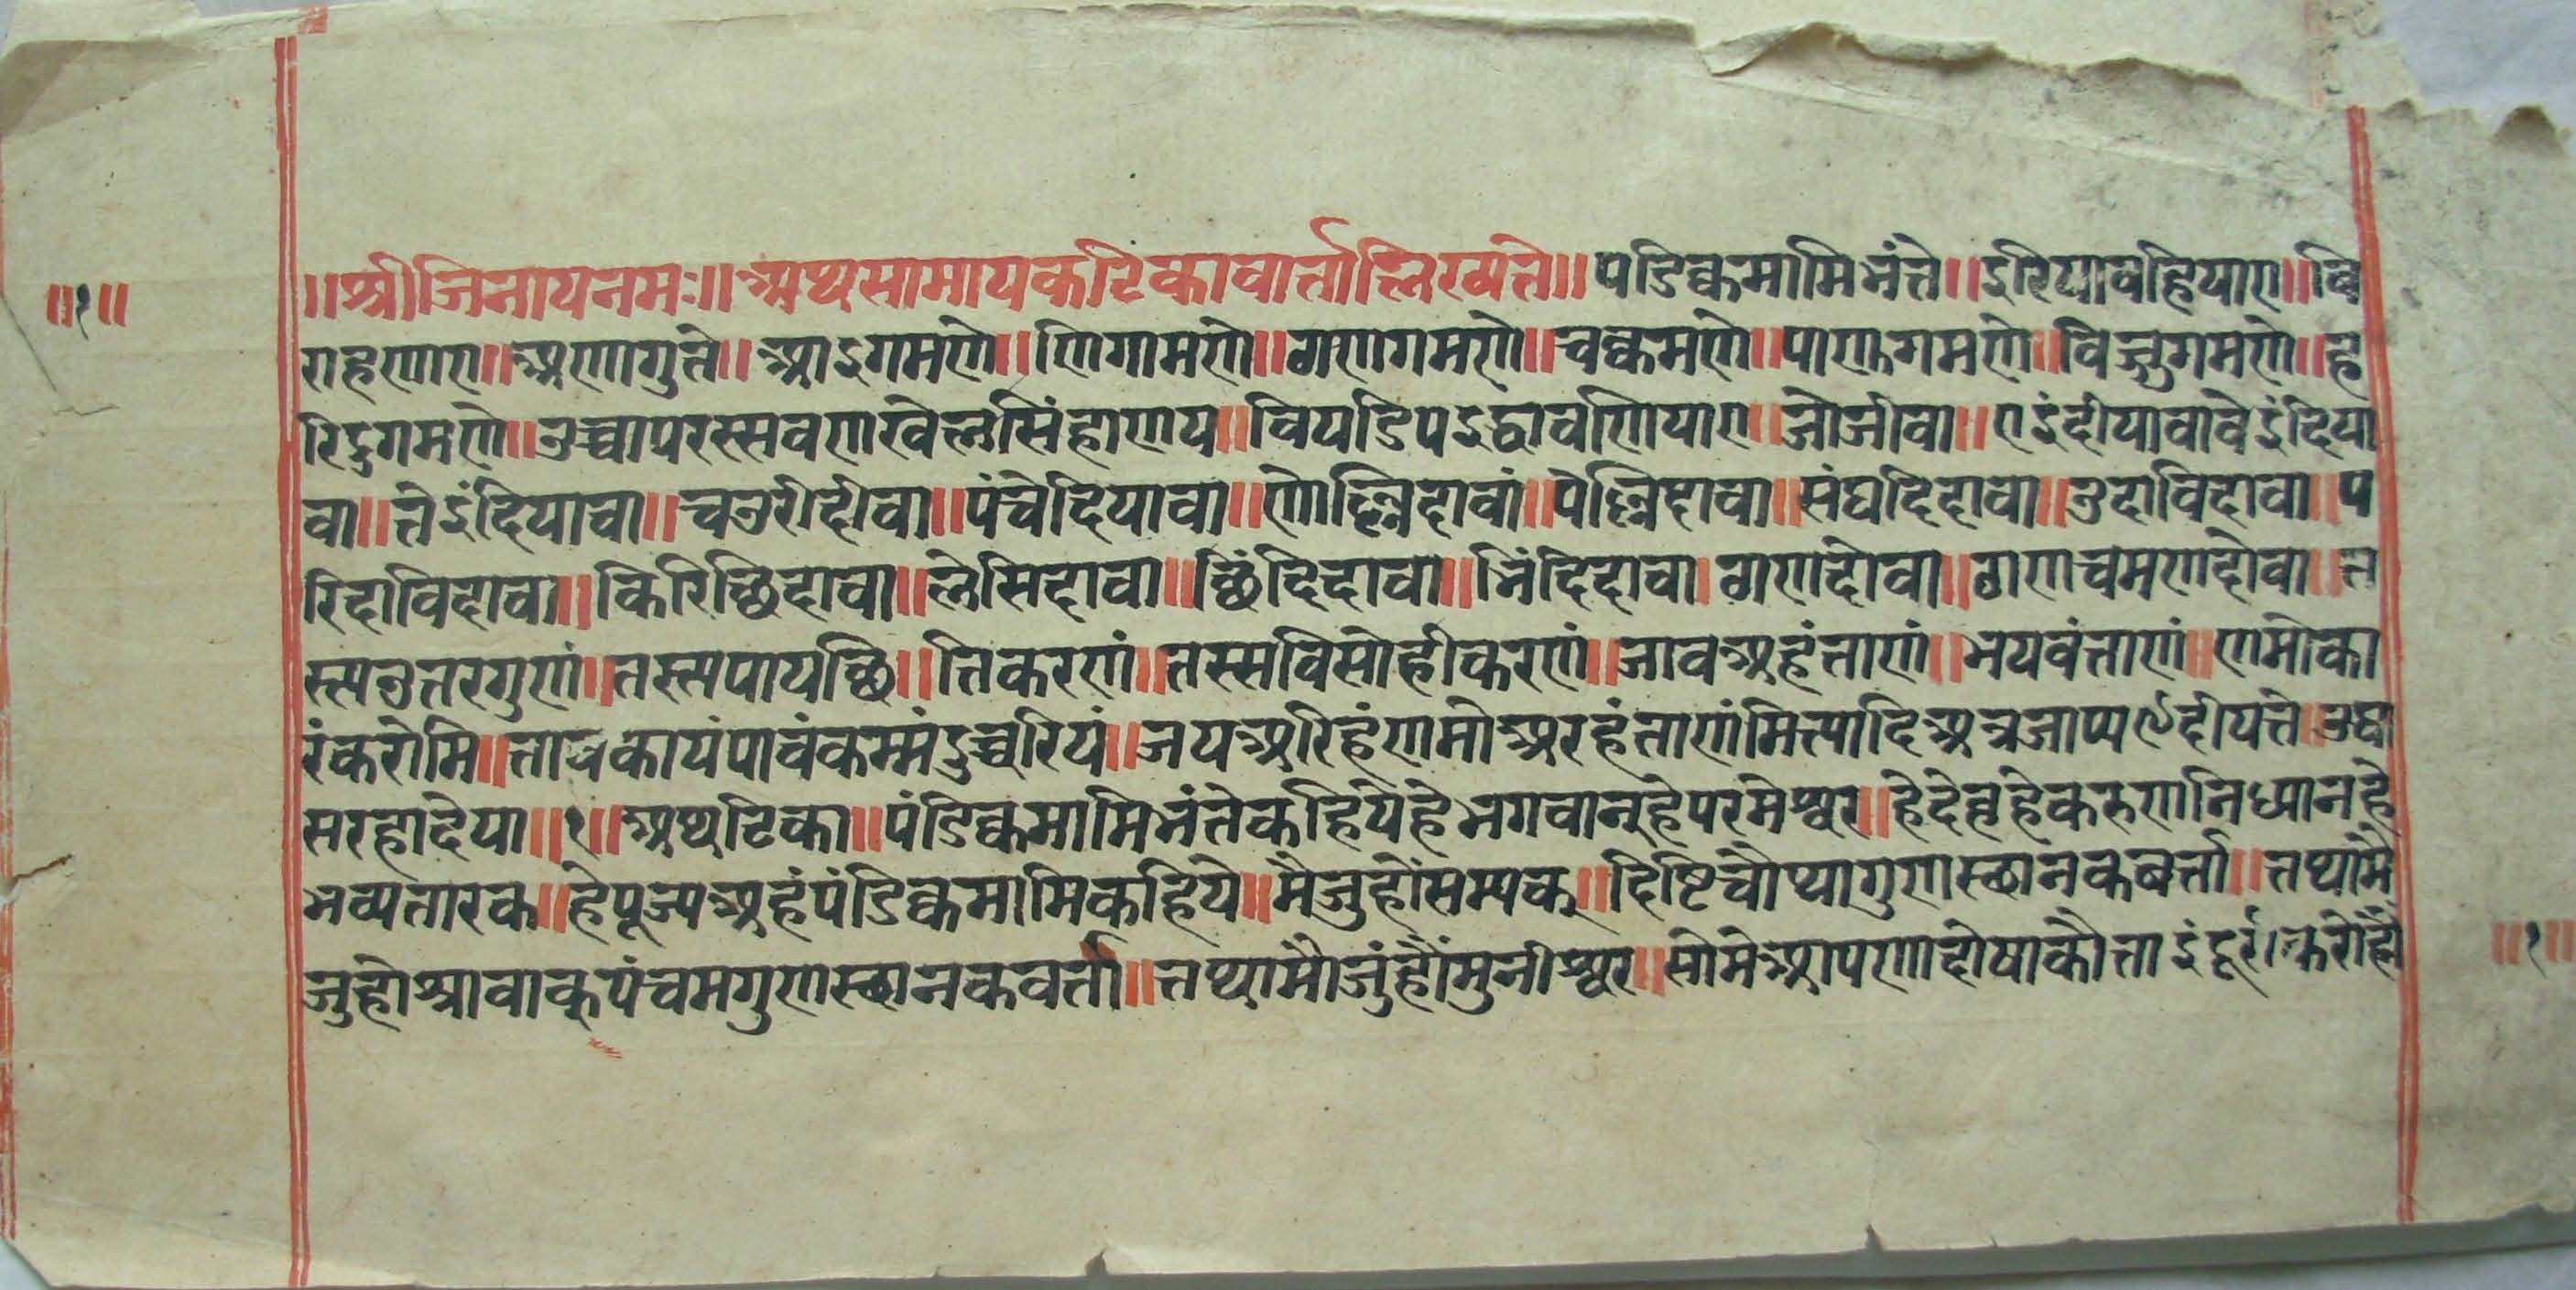 ॥श्रीजिनायनमः॥अथसामायकटिकावार्त्तालिख्यते॥पडिक्कमामिभंत्ते॥इरियावहियाए॥वि
राहणाए॥अणागुत्ते॥आइगमणे॥णिगामणे॥ठाणगमणे॥चक्कमणे॥पाणुगमणे॥विज्जुगमणे॥ह
रिदुगमणे॥उच्चापरस्सवणखेलसिंहाणय॥वियडिपइट्ठावणियाए॥जेजीवा॥एइंदीयावावेइंदिया
वा॥तेइंदियावा॥चउरींदीवा॥पंचेदियावा॥णोल्लिदावां॥पेल्लिदावा॥संघदिदावा॥उदाविदावा॥प
रिदाविदावा॥किरिच्छिदावा॥लेसिदावा॥छिंदिदावा॥भिंदिदावा॥ठाणदोवा॥ठाणचमणदोवा॥त
स्सउत्तरगुणं॥तस्सपायच्छि॥त्तिकरणं॥तस्सविसोहीकरणं॥जावअहंत्ताणं॥भयवंत्ताणं॥णमोका
रंकरोमि॥त्तावकायंपावंकम्मंदुच्चरियं॥जयअरिहंणमोअरहंताणंमित्यादिअत्रजाप्य९दीयत्ते॥उघा
सरहादेया॥१॥अथटिका॥पंडिक्कमामिभंतेकहियेहेभगवान्हेपरमेश्वर॥हेदेवहेकरुणानिधानहे
भव्यतारक॥हेपूज्यअहंपंडिक्कमामिकहिये॥मैजुहोंसम्यक्॥दिष्टिचौथागुणस्छानकवर्त्ता॥तथामै
जुहोश्रावाकपंचमगुणस्छानकवर्त्ता॥तथामौजुंहौंमुनीश्वर॥सोमेआपणदोषाकौत्ताइंदूर।करोंहौं
॥१॥
॥१॥